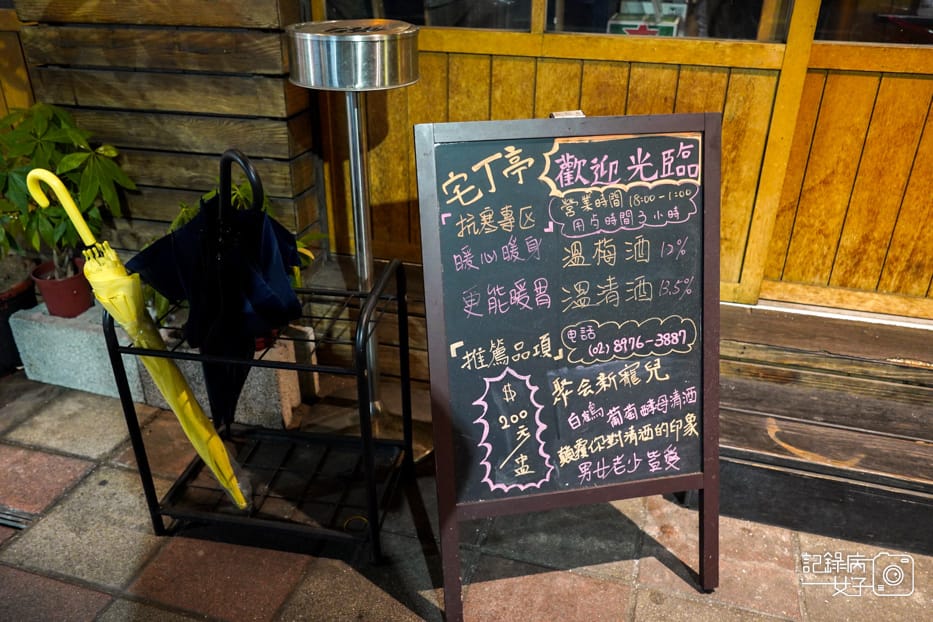 宅丁亭
歡迎光臨
營業時間 18:00-1:00
用歺時間 2 小時
抗寒專区
暖心暖身
溫梅酒 12%
更能暖胃
溫清酒 13.5%
電話
(02) 8976-3887
推薦品項
聚会新寵兒
$200元/盅
白鶴 葡萄酵母清酒
顛覆你對清酒的印象
男女老少皆愛
記錄病
女子